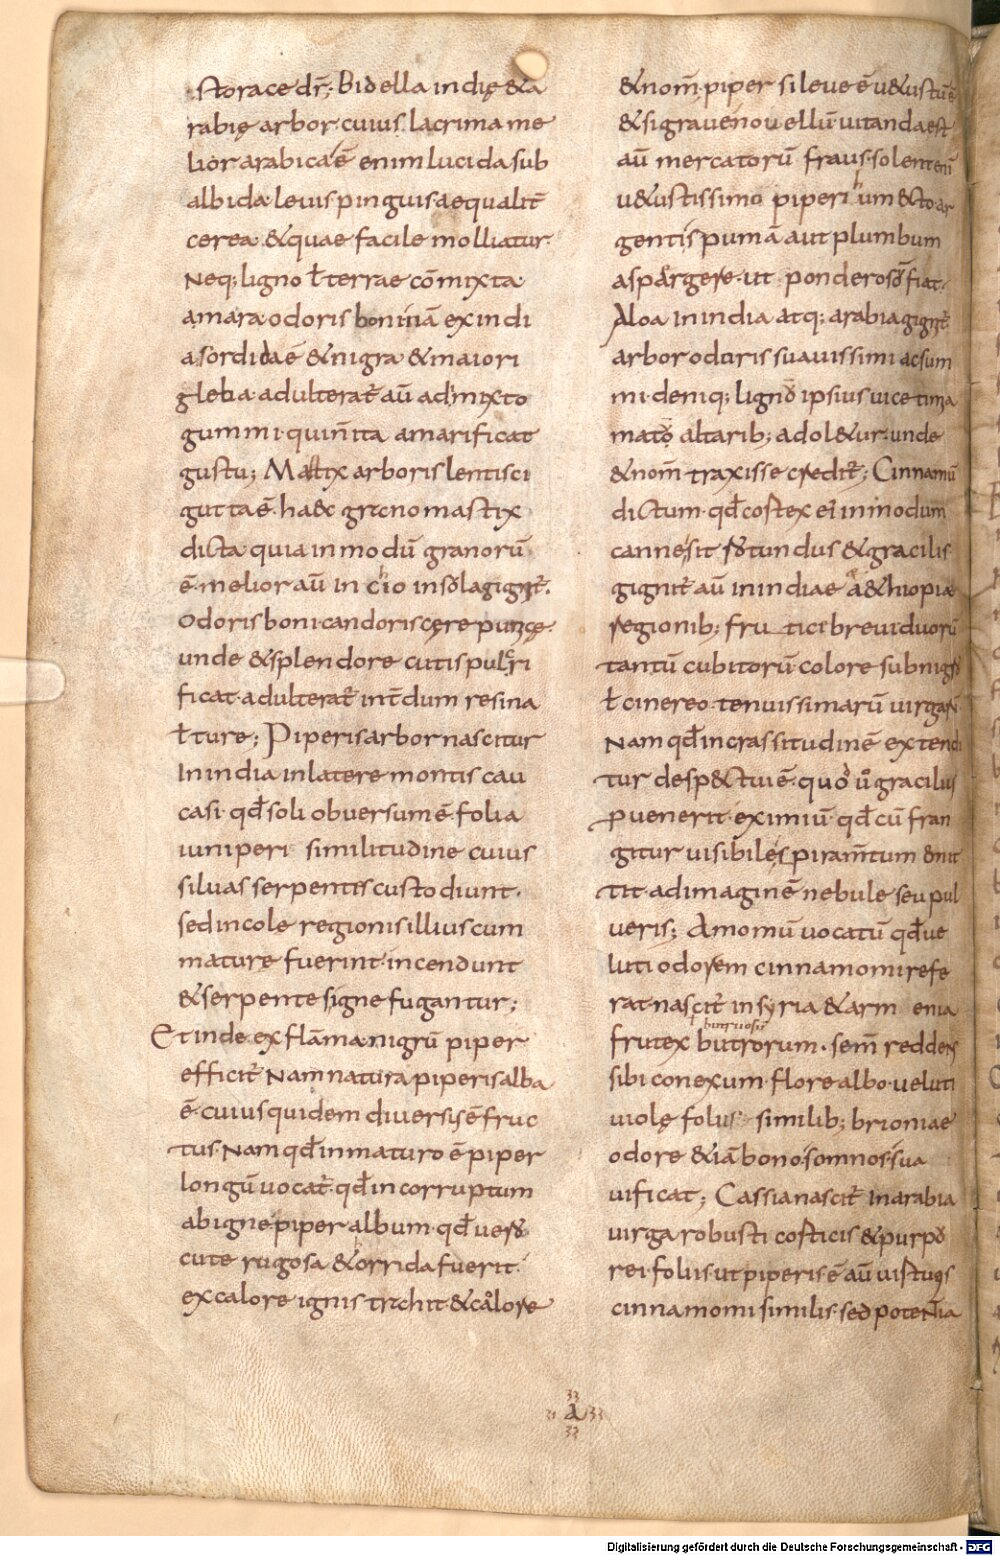 storace dr̄; Bidella indię &a
rabię arbor cuius lacrima me
lior arabica ē enim lucida sub
albida leuis pinguis aequalit̄
cerea &quae facile molliatur·
Neq; ligno ł terrae cōmixta·
amara odoris boni nā ex indi
a sordida ē &nigra &maiori
gleba adulterat̄ aū admixto
gummi quin̄ita amarificat
gustu; Mastix arboris lentisci
gutta ē· haec greno mastix
dicta quia in modū granorū
ē· melior aū in chio insola gignit̄·
Odoris boni candoris cęre punicę·
unde &splendore cutis pulcri
ficat· adulterat̄ int̄dum resina
ł ture; Piperis arbor nascitur
In india in latere montis cau
casi· qd̄ soli obuersum ē· folia
iuniperi similitudine cuius
siluas serpentes custodiunt·
sed incole regionis illius cum
mature fuerint· incendunt
&serpentes igne fugantur;
Et inde ex flāma nigrū piper
efficit̄ Nam natura piperis alba
ē cuius quidem diuersis ē fruc
tus· Nam qd̄ inmaturo ē piper
longū uocat̄· qd̄ incorruptum
ab igne piper album· qd̄ uero
cute rugosa &orrida fuerit·
ex calore ignis trehit &calore
&nom̄ piper si leue ē u&ustū ē
&si graue nouellū uitanda est
aū mercatorū fraus· solent enī
u&ustissimo piperi hum&to ar
gentis pumā aut plumbum
aspargere· ut ponderosū fiat·
Aloa in india atq; arabia gignit̄
arbor odoris suauissimi ac sum
mi· deniq; lignū ipsius uice timia
mato altarib; adol&ur· unde
&nom̄ traxisse credit̄; Cinnamū
dictum· qd̄ costex ei in modum
canne sit rotundus &gracilis
gignit̄ aū in indiae a&hiopiae
regionib; frutici breui duorū
tantū cubitorū colore subnigro
ł cinereo· tenuissimarū uirgarū
Nam qd̄ in crassitudinē extendi
tur despectui ē· quo ū gracilius
puenerit eximiū· qd̄ cū fran
gitur uisibile spiram̄tum emit
tit· ad imaginē nebule seu pul
ueris; Amomū uocatū qd̄ ue
luti odorem cinnamomi refe
rat· nascit̄ in syria &armenia
butruosū
frutex butrorum· sem̄ reddens
sibi conexum· flore albo· ueluti
uiolę foliis similib; brioniae
odore &iā bono· somnos sua
uificat; Cassia nascit̄ in arabia
uirga robusti costicis &purpo
rei foliis ut piperis ē aū uistuos
cinnamomi similis· sed potentia